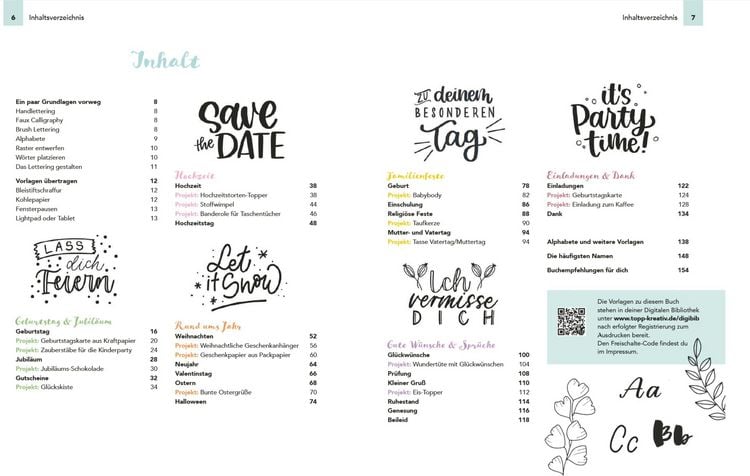 6 Inhaltsverzeichnis
Inhalt
Ein paar Grundlagen vorweg 8
Handlettering 8
Faux Calligraphy 8
Brush Lettering 8
Alphabete 9
Raster entwerfen 10
Wörter platzieren 10
Das Lettering gestalten 11
Vorlagen übertragen 12
Bleistiftschraffur 12
Kohlepapier 12
Fensterpausen 13
Lightpad oder Tablet 13
LASS
dich
Feiern
Geburtstag & Jubiläum
Geburtstag 16
Projekt: Geburtstagskarte aus Kraftpapier 20
Projekt: Zauberstäbe für die Kinderparty 24
Jubiläum 28
Projekt: Jubiläums-Schokolade 30
Gutscheine 32
Projekt: Glückskiste 34
Save
the DATE
Hochzeit
Hochzeit 38
Projekt: Hochzeitstorten-Topper 38
Projekt: Stoffwimpel 44
Projekt: Banderole für Taschentücher 46
Hochzeitstag 48
Let
it Snow
Rund ums Jahr
Weihnachten 52
Projekt: Weihnachtliche Geschenkanhänger 56
Projekt: Geschenkpapier aus Packpapier 60
Neujahr 64
Valentinstag 66
Ostern 68
Projekt: Bunte Ostergrüße 70
Halloween 74
Inhaltsverzeichnis 7
zu deinem
BESONDEREN
Tag
Familienfeste
Geburt 78
Projekt: Babybody 82
Einschulung 86
Religiöse Feste 88
Projekt: Taufkerze 90
Mutter- und Vatertag 94
Projekt: Tasse Vatertag/Muttertag 94
Ich
vermisse
DICH
Gute Wünsche & Sprüche
Glückwünsche 100
Projekt: Wundertüte mit Glückwünschen 104
Prüfung 108
Kleiner Gruß 110
Projekt: Eis-Topper 112
Ruhestand 114
Genesung 116
Beileid 118
it's
Party
time!
Einladungen & Dank
Einladungen 122
Projekt: Geburtstagskarte 124
Projekt: Einladung zum Kaffee 128
Dank 134
Alphabete und weitere Vorlagen 138
Die häufigsten Namen 148
Buchempfehlungen für dich 154
Die Vorlagen zu diesem Buch
stehen in deiner Digitalen Bibliothek
unter www.topp-kreativ.de/digibib
nach erfolgter Registrierung zum
Ausdrucken bereit.
Den Freischalte-Code findest du
im Impressum.
Aa
Cc Bb